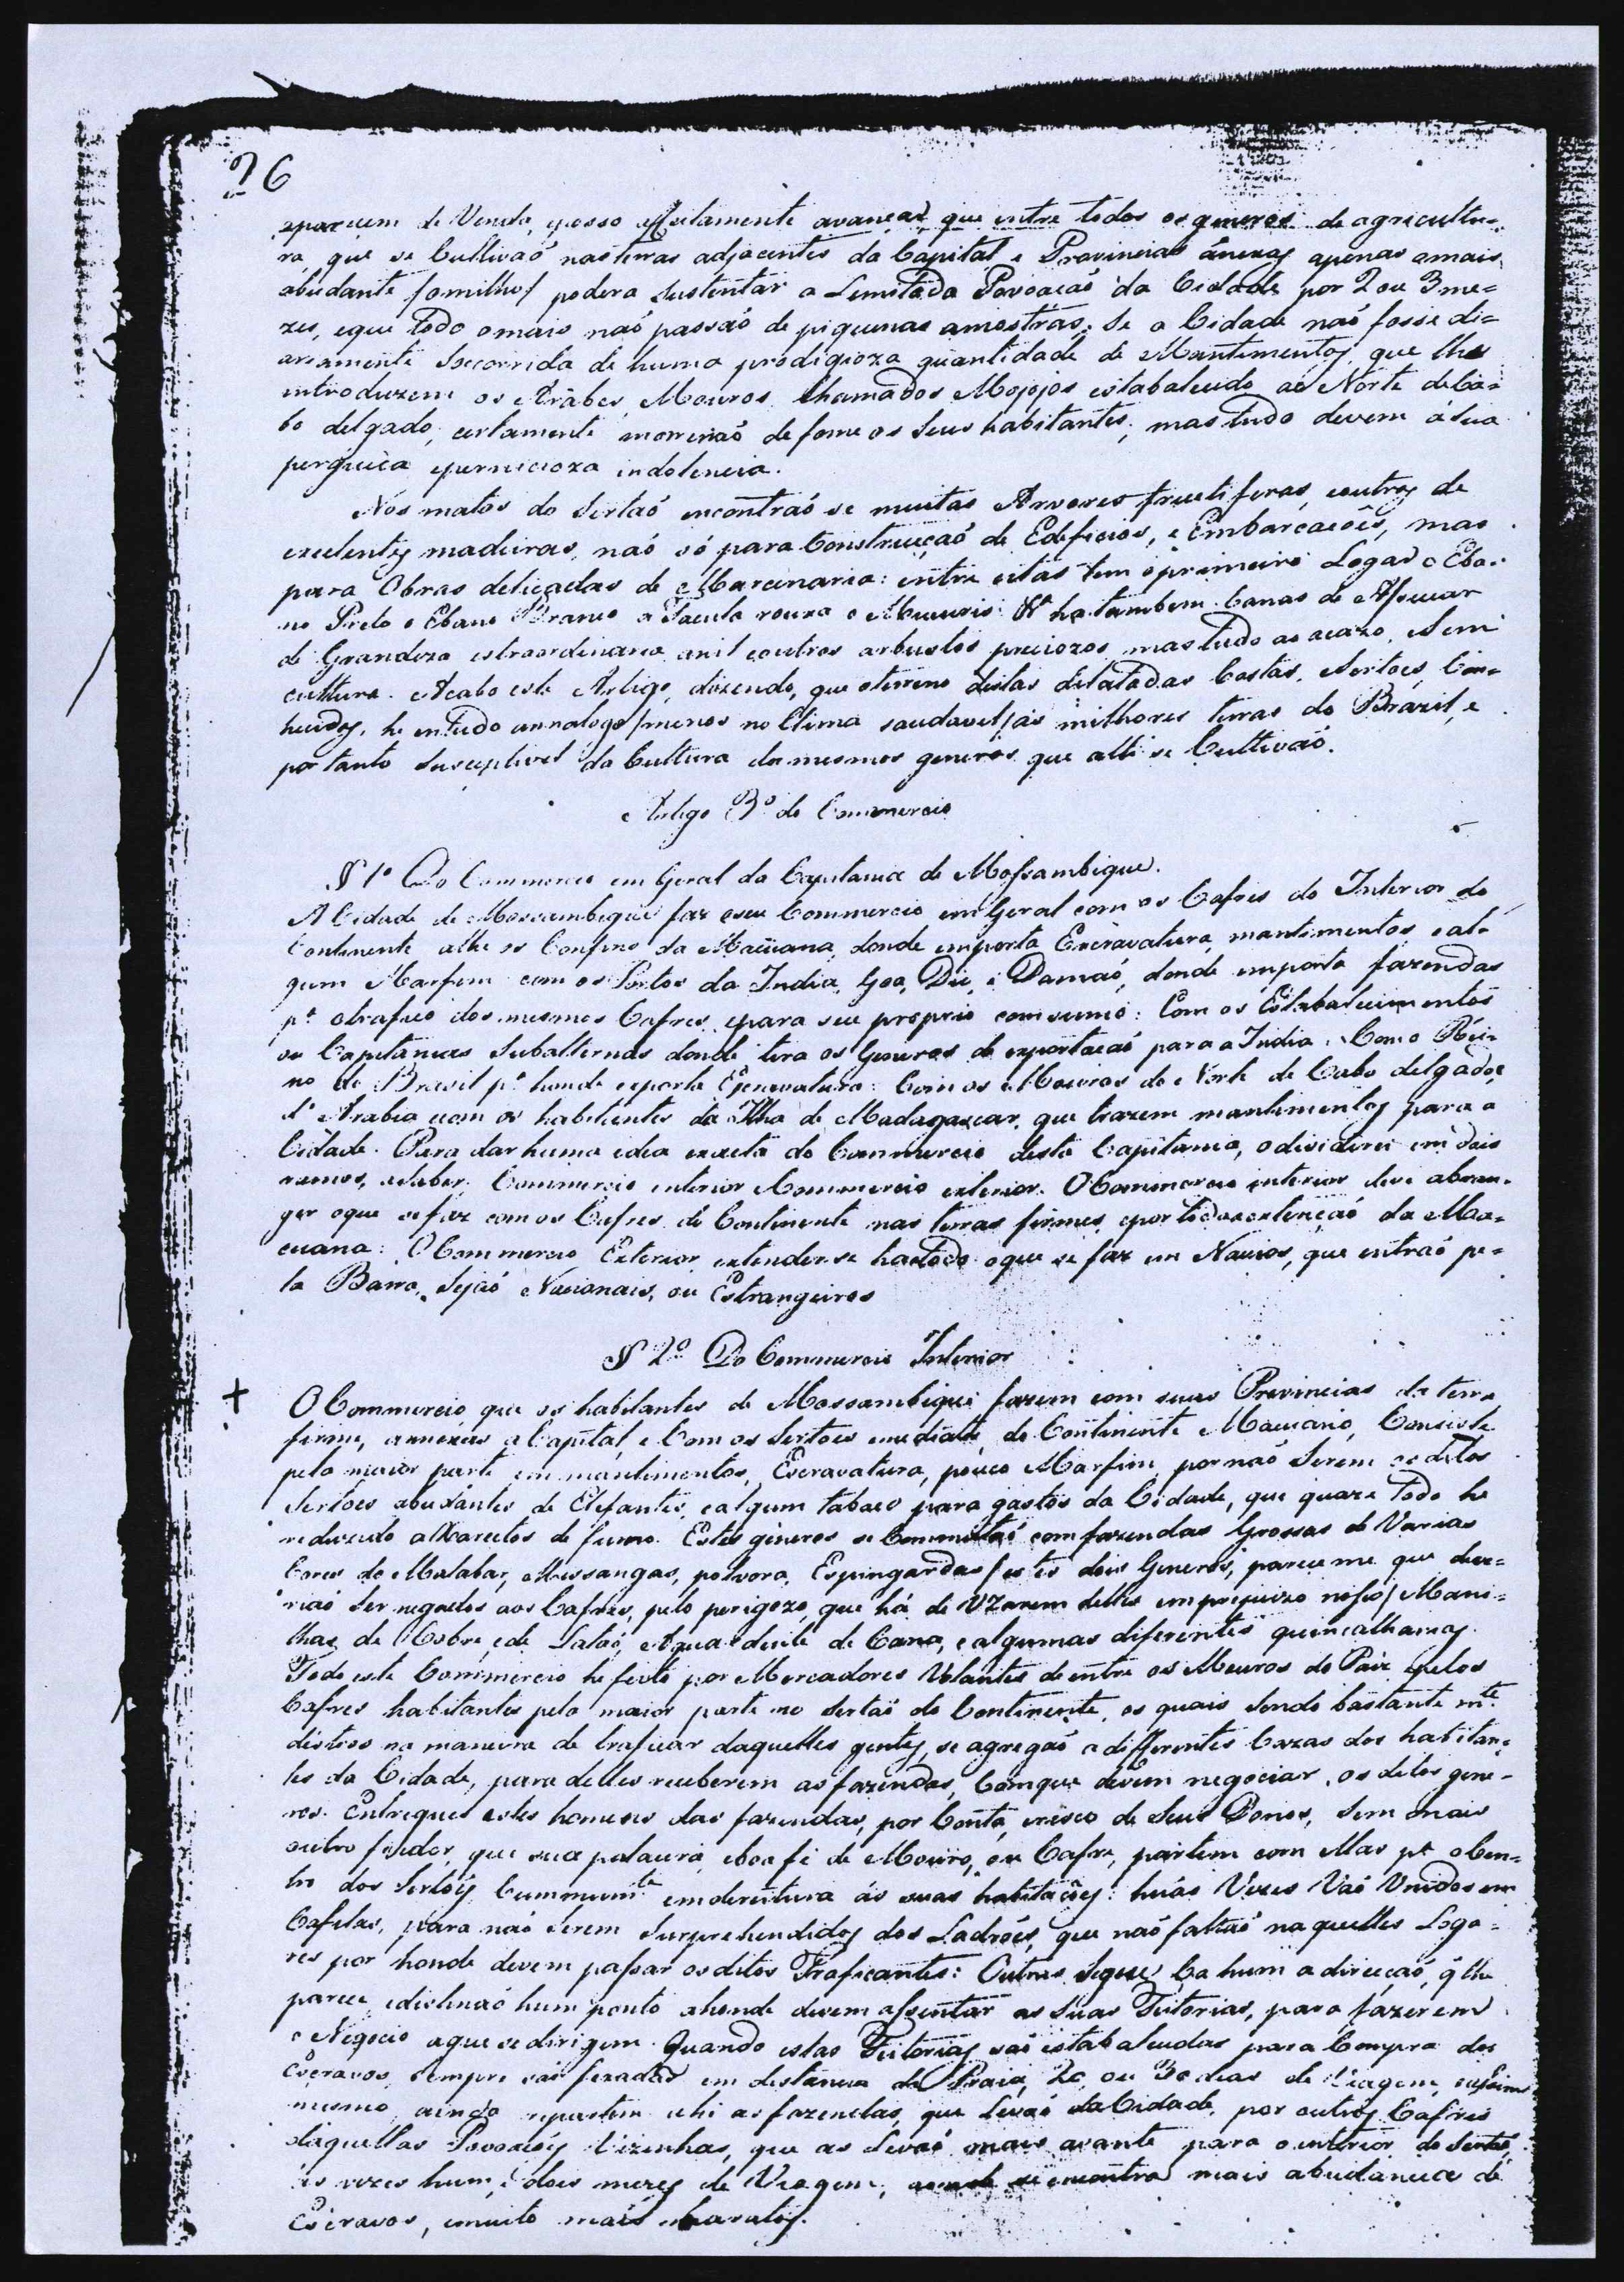 26
aparecem de Venda, posso afoitamente avançar que entre todos os generos de agricultu=
ra, que se Cultivaó nas terras adjacentes da Capital e Provincias ánexas apenas amais
abudante /omilho/ podera sustentar a Lemitada Povoacaó da Cidade por 2 ou 3 me=
zes, eque todo omais naó passaó de piquenas amostras. Se a Cidade naó fosse di=
ariamente Soccorrida de huma prodigioza quantidade de Mantimentos, que lhes
introduzem os Arabes, Mouros chamados Mojojos estabalecido ao Norte de Ca=
bo delgado, certamente morreriaó de fome os Seus habitantes, mas tudo devem á Sua
perguica epernicioza indolencia.
Nos matos do Sertaó encontraó se muitas Arvores fructiferas, eoutras de
excelentes madeiras, naó só para Construcçaó de Edeficios, e Embarcacoẽs, mas
para Obras delicadas de Marcenaria: entre estas tem oprimeiro Logar o Eba=
no Preto o Ebano Branco a Tacula rouxa o Mucuris: ha tambem Canas de Assucar
de Grandeza estraordinaria anil eoutros arbustos preciozos mas tudo ao acazo, e Sem
cultura. Acabo este Artigo, dizendo, que oterreno destas dilatadas Costas, e Sertoes Con=
hecidos, he em tudo annalogo /menos no Clima saudavel/ ás milhores terras do Brazil, e
por tanto Susceptivel da Cultura dos mesmos generos que alli se Cultivaó.
Artigo 3º do Commercio
§ 1º Do Commercio em Geral da Capitania de Mossambique.
A Cidade de Mossambique faz oseu Commercio em Geral com os Cafres do Interior do
Continente athe os Confins da Macuana, donde emporta Escravatura, mantimentos e al=
gum Marfim com os Portos da India, Goa, Dio, e Damaó, donde emporta fazendas
pª otrafico dos mesmos Cafres, epara seu proprio comsumo: Com os Estabalecimentos
ou Capitanias Subalternas donde tira os Generos de exportacaó para a India: Com o Rei=
no do Brasil pª honde exporta Escravatura: Com os Mouros do Norte de Cabo delgado, e
d' Arabia ecom os habitentes da Ilha de Madagascar, que trazem mantimentos para a
Cidade. Para dar huma idea exacta do Commercio desta Capitania, odividirei em dois
ramos, aSaber: Commercio interior e Commercio exterior. O Commercio interior deve abran=
ger oque se faz com os Cafres do Continente nas terras firmes, epor toda aextençaó da Ma=
cuana: O Commercio Exterior entender se ha todo oque se faz em Navios, que entraó pe=
la Barra, Sejaó Nacionais, ou Estrangeiros
§ 2º Do Commercio Interior
+ O Commercio que os habitantes de Mossambique fazem com suas Provincias da terra
firme, annexas a Capital, e Com os Sertoes emediatos do Continente Macuano, Consiste
pela maior parte em mantimentos, Escravatura, pouco Marfim por naó Serem os ditos
Sertoes abudantes de Elefantes, ealgum tabaco para gastos da Cidade, que quaze todo he
reduzido a Xarutos de fumo. Estes géneros se Commutaó com fazendas Grossas de Varias
Cores do Malabar, Missangas, polvora, Espingardas /estes dois Generos, pareceme que deve=
riaó Ser negados aos Cafres, pelo perigozo, que há de Uzarem delles em prejuizo nosso/ Mani=
lhas de Cobre, ede Lataó, Agua ardente de Cana, e algumas diferentes quincalharias.
Todo este Commercio he feito por Mercadores Volantes de entre os Mouros do Paiz epelos
Cafres habitantes pela maior parte no Sertaó do Continente, os quais Sendo bastante mte
déstros na maneira de traficar daquelles gentes, se agregaó a differentes Cazas dos habitan=
tes da Cidade, para delles receberem as fazendas, Comque devem negociar, os ditos gene=
ros. Entregues estes homens das fazendas, por Conta, erisco de Seus Donos, Sem mais
outro fiador, que sua palaura, eboa fé de Mouro, ou Cafre, partem com ellas pª oCen=
tro dos Sertoẽs, Cummumte emdereitura ás suas habitaçoẽs: huás Vezes Vaó Unidos em
Cafilas, para naó Serem Surprehendidos dos Ladroẽs, que naó faltaó naquelles Loga=
res por honde devem passar osditos Traficantes: Outras Segue Ca hum a direcçaó, q̃ lhe
parece, edestinaó hum ponto ahonde devem assentar as Suas Feitorias, para fazerem
o Negocio aque se dirigem. Quando estas Feitorias saó estabalecidas para Compra dos
Escravos, Sempre saó fixadas em distancia da Praia, 20, ou 30 dias de Viagem, eassim
mesmo, ainda repartem ahi as fazendas, que Levaó da Cidade, por outros Cafres
daquellas Povoacoẽs Vizinhas, que as Levaó mais avante para o interior do Sertaó,
ás vezes hum, e dois mezes de Viagem, aonde se encontra mais abudancia de
Escravos, emuito mais baratos.